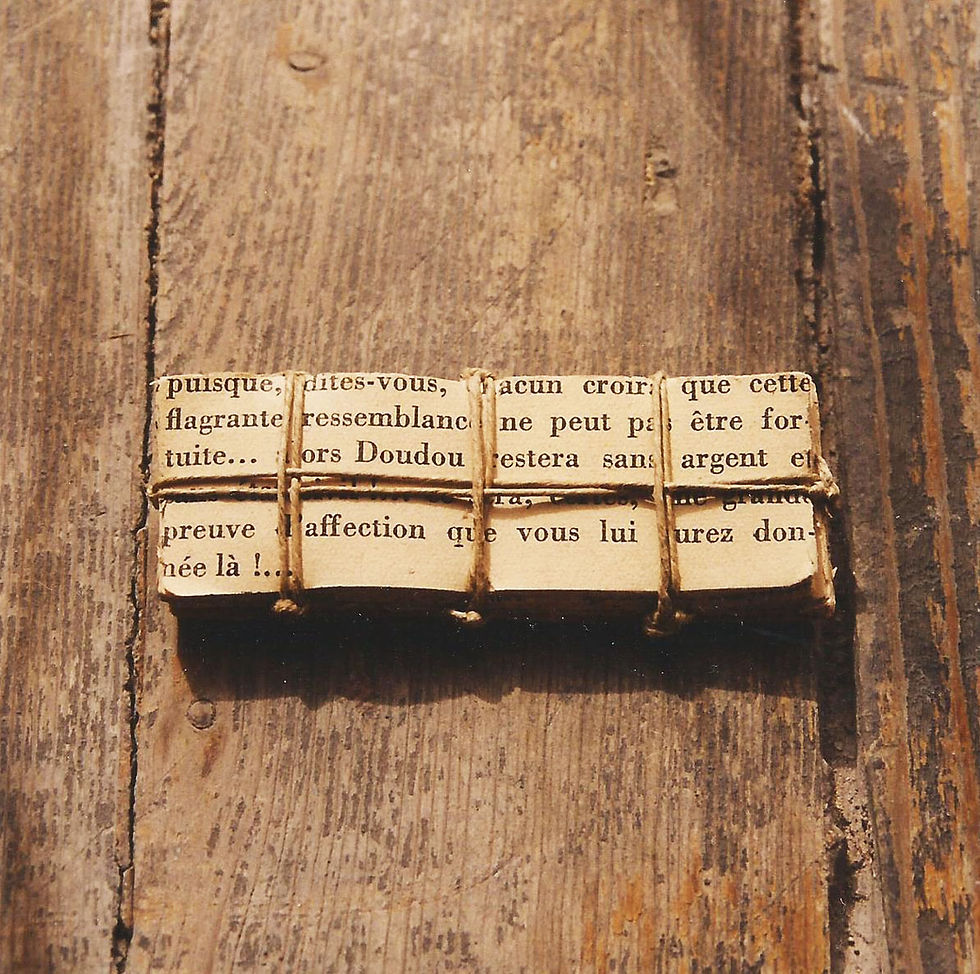 puisque, dites-vous, chacun croira que cette
flagrante ressemblance ne peut pas être for-
tuite... alors Doudou restera sans argent et
grande
preuve d'affection que vous lui aurez don-
née là !...